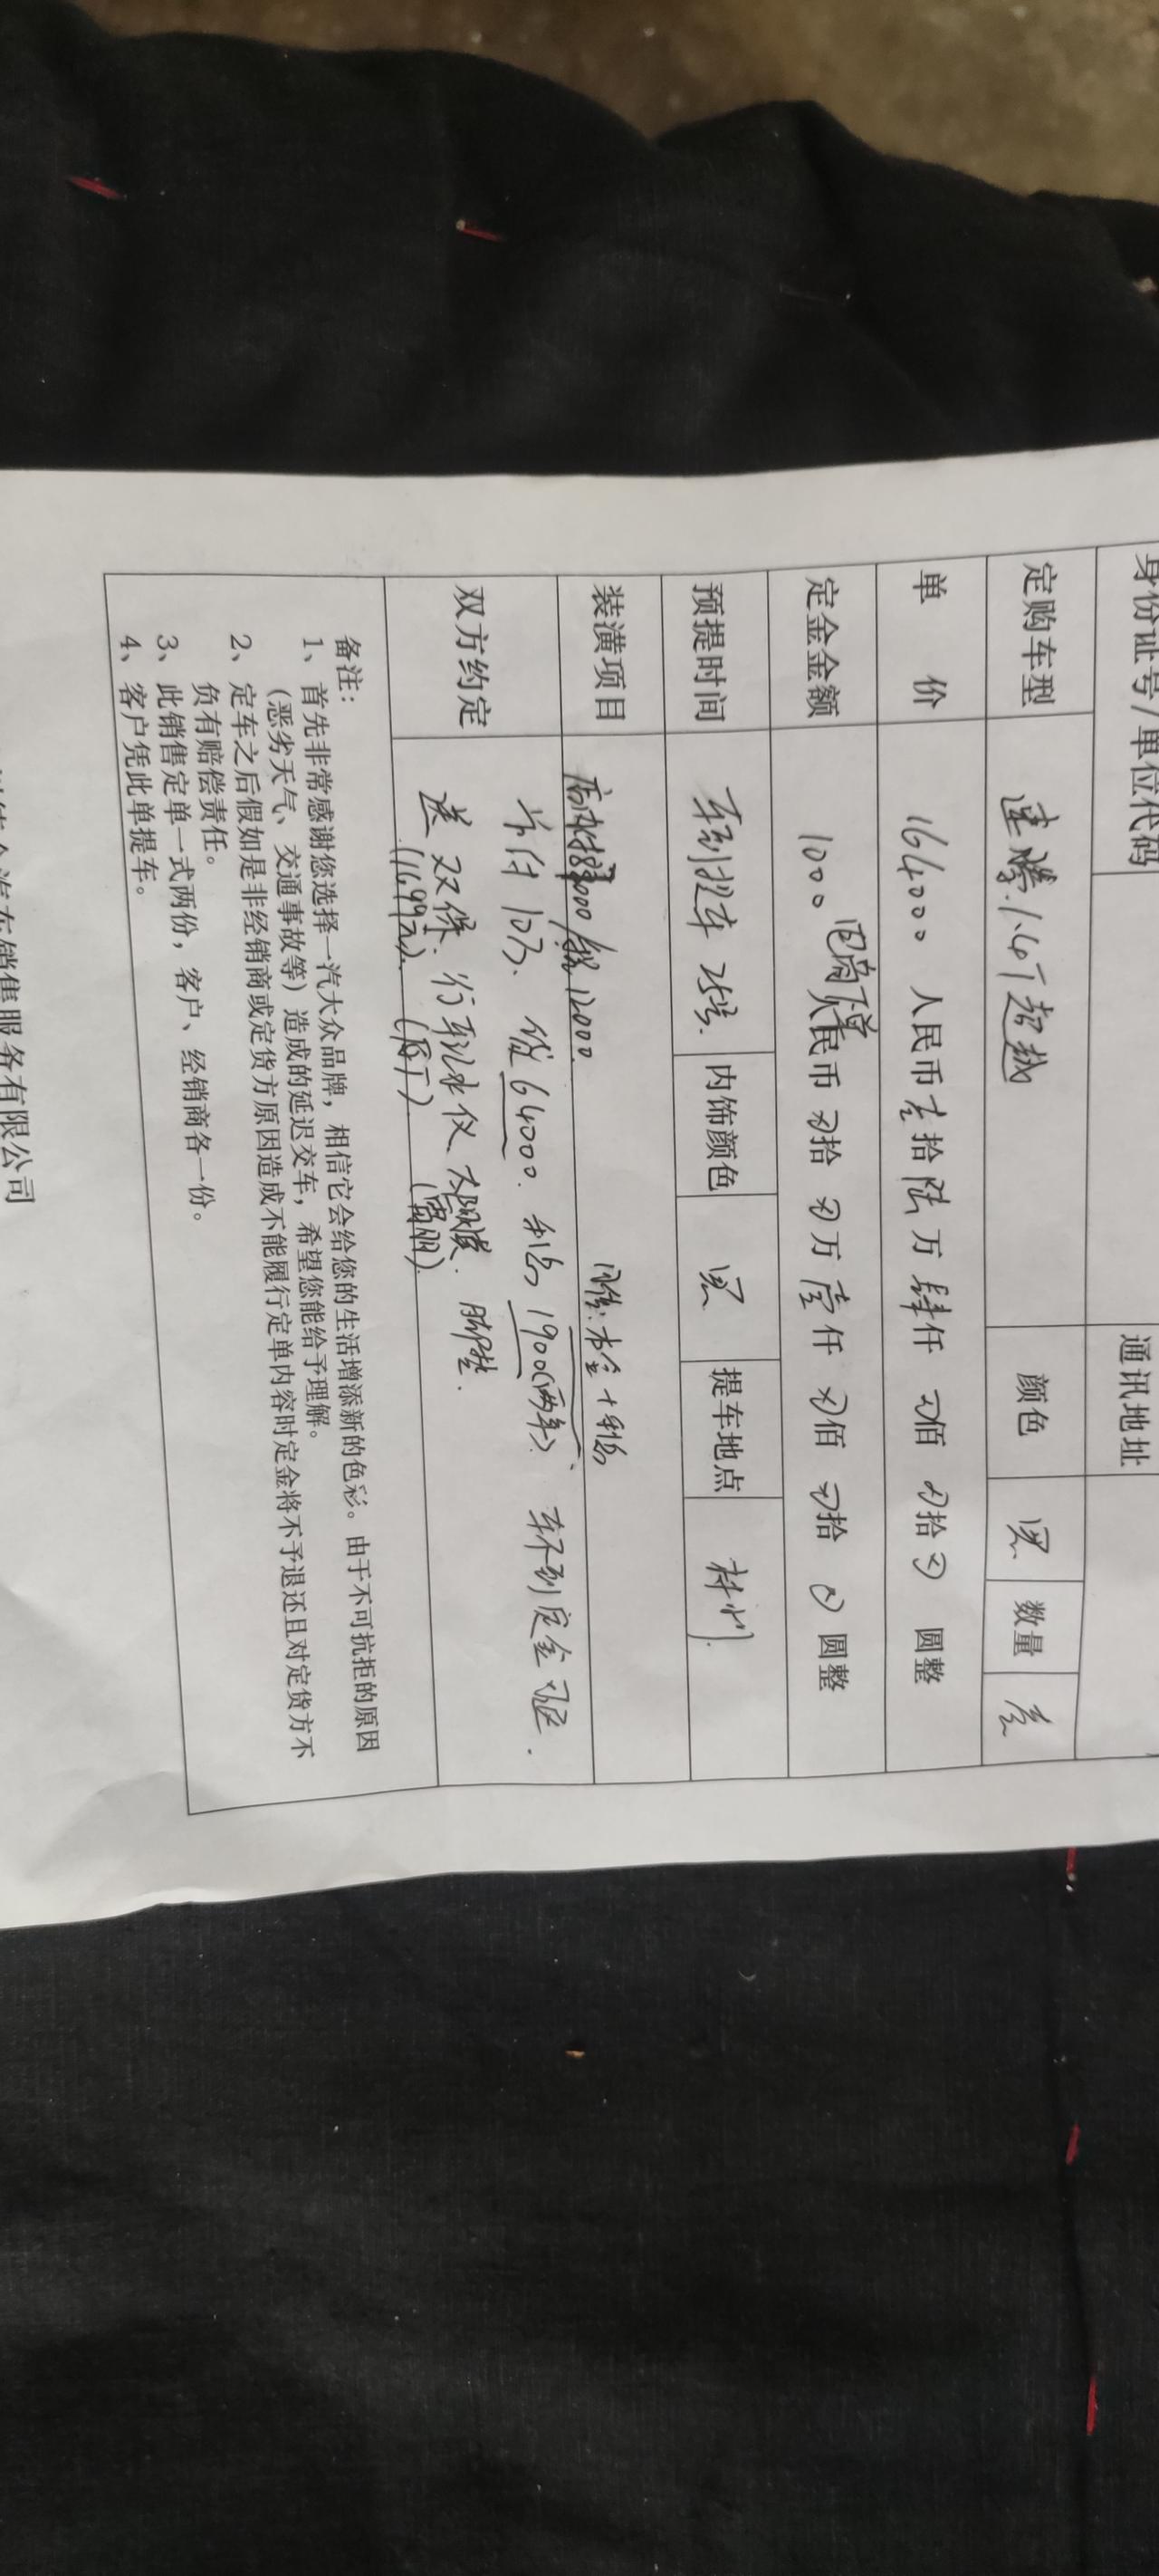 身份证号/单位代码 通讯地址
定购车型 速腾.1.4T超越 颜色 黑 数量 壹
单 价 164000 人民币 壹拾陆万肆仟 佰 拾 圆整
定金金额 1000 人民币 拾 万壹仟 佰 拾 圆整
预提时间 车到提车 25号. 内饰颜色 黑 提车地点
装潢项目 12000. 本金+利息
双方约定 首付10万、贷64000. 利息1900(两年) 车不到定金可退.
送 双保. 行车记录仪 太阳膜. 脚垫.
(1699元). (原厂) (雷朋).
备注：
1、首先非常感谢您选择一汽大众品牌，相信它会给您的生活增添新的色彩。由于不可抗拒的原因
(恶劣天气、交通事故等）造成的延迟交车，希望您能给予理解。
2、定车之后假如是非经销商或定货方原因造成不能履行定单内容时定金将不予退还且对定货方不
负有赔偿责任。
3、此销售定单一式两份，客户、经销商各一份。
4、客户凭此单提车。
汽车销售服务有限公司